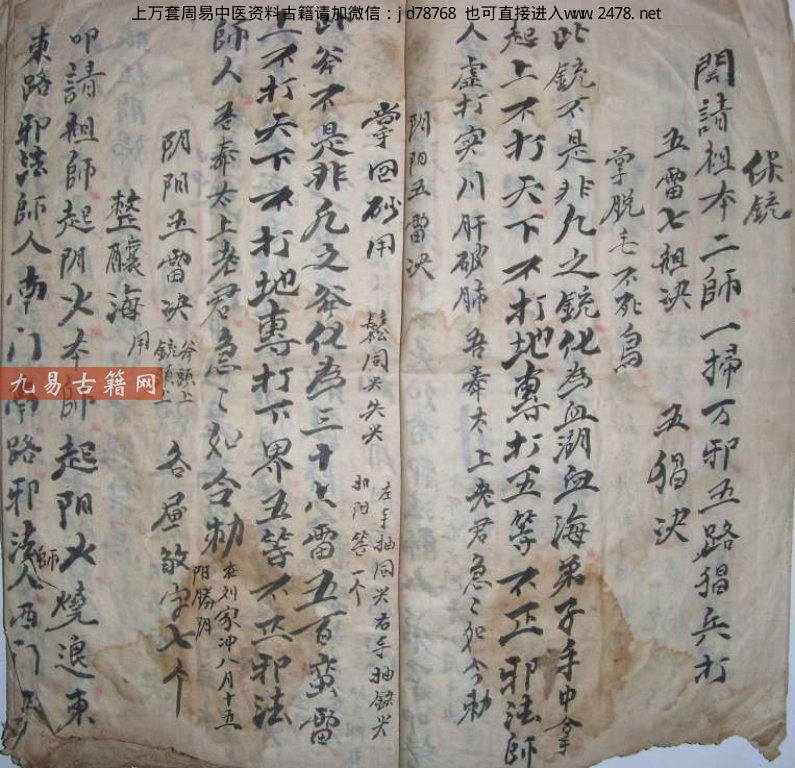 上万套周易中医资料古籍请加微信：jd78768 也可直接进入www.2478.net
保銃
閗請祖本二師一掃万邪五路猖兵打
五雷七祖決 五猖決
掌脱毛不死鳥
此銃不是非凡之銃化為血湖血海弟子手中拿
起上不打天下不打地專打五等不正邪法師
人虛打実川肝破肺吾奉太上老君急々如令勅
阴阳五雷決
左手抽同光右手抽錄光
扣阳筶一个
鬆同光失光
掌回砂用
此斧不是非凡之斧化為三十六雷五百蛮雷
上不打天下不打地專打下界五等不正邪法
師人吾奉太上老君急々如令勅
在刘家冲八月十五
阳勝阴
阴阳五雷決 斧頭上
銃頭上
各畫敏字七个
整釀海用
叩請祖師起阴火本師起阳火燒退東
東路邪法師人南门南路邪法師人西门西
九易古籍网